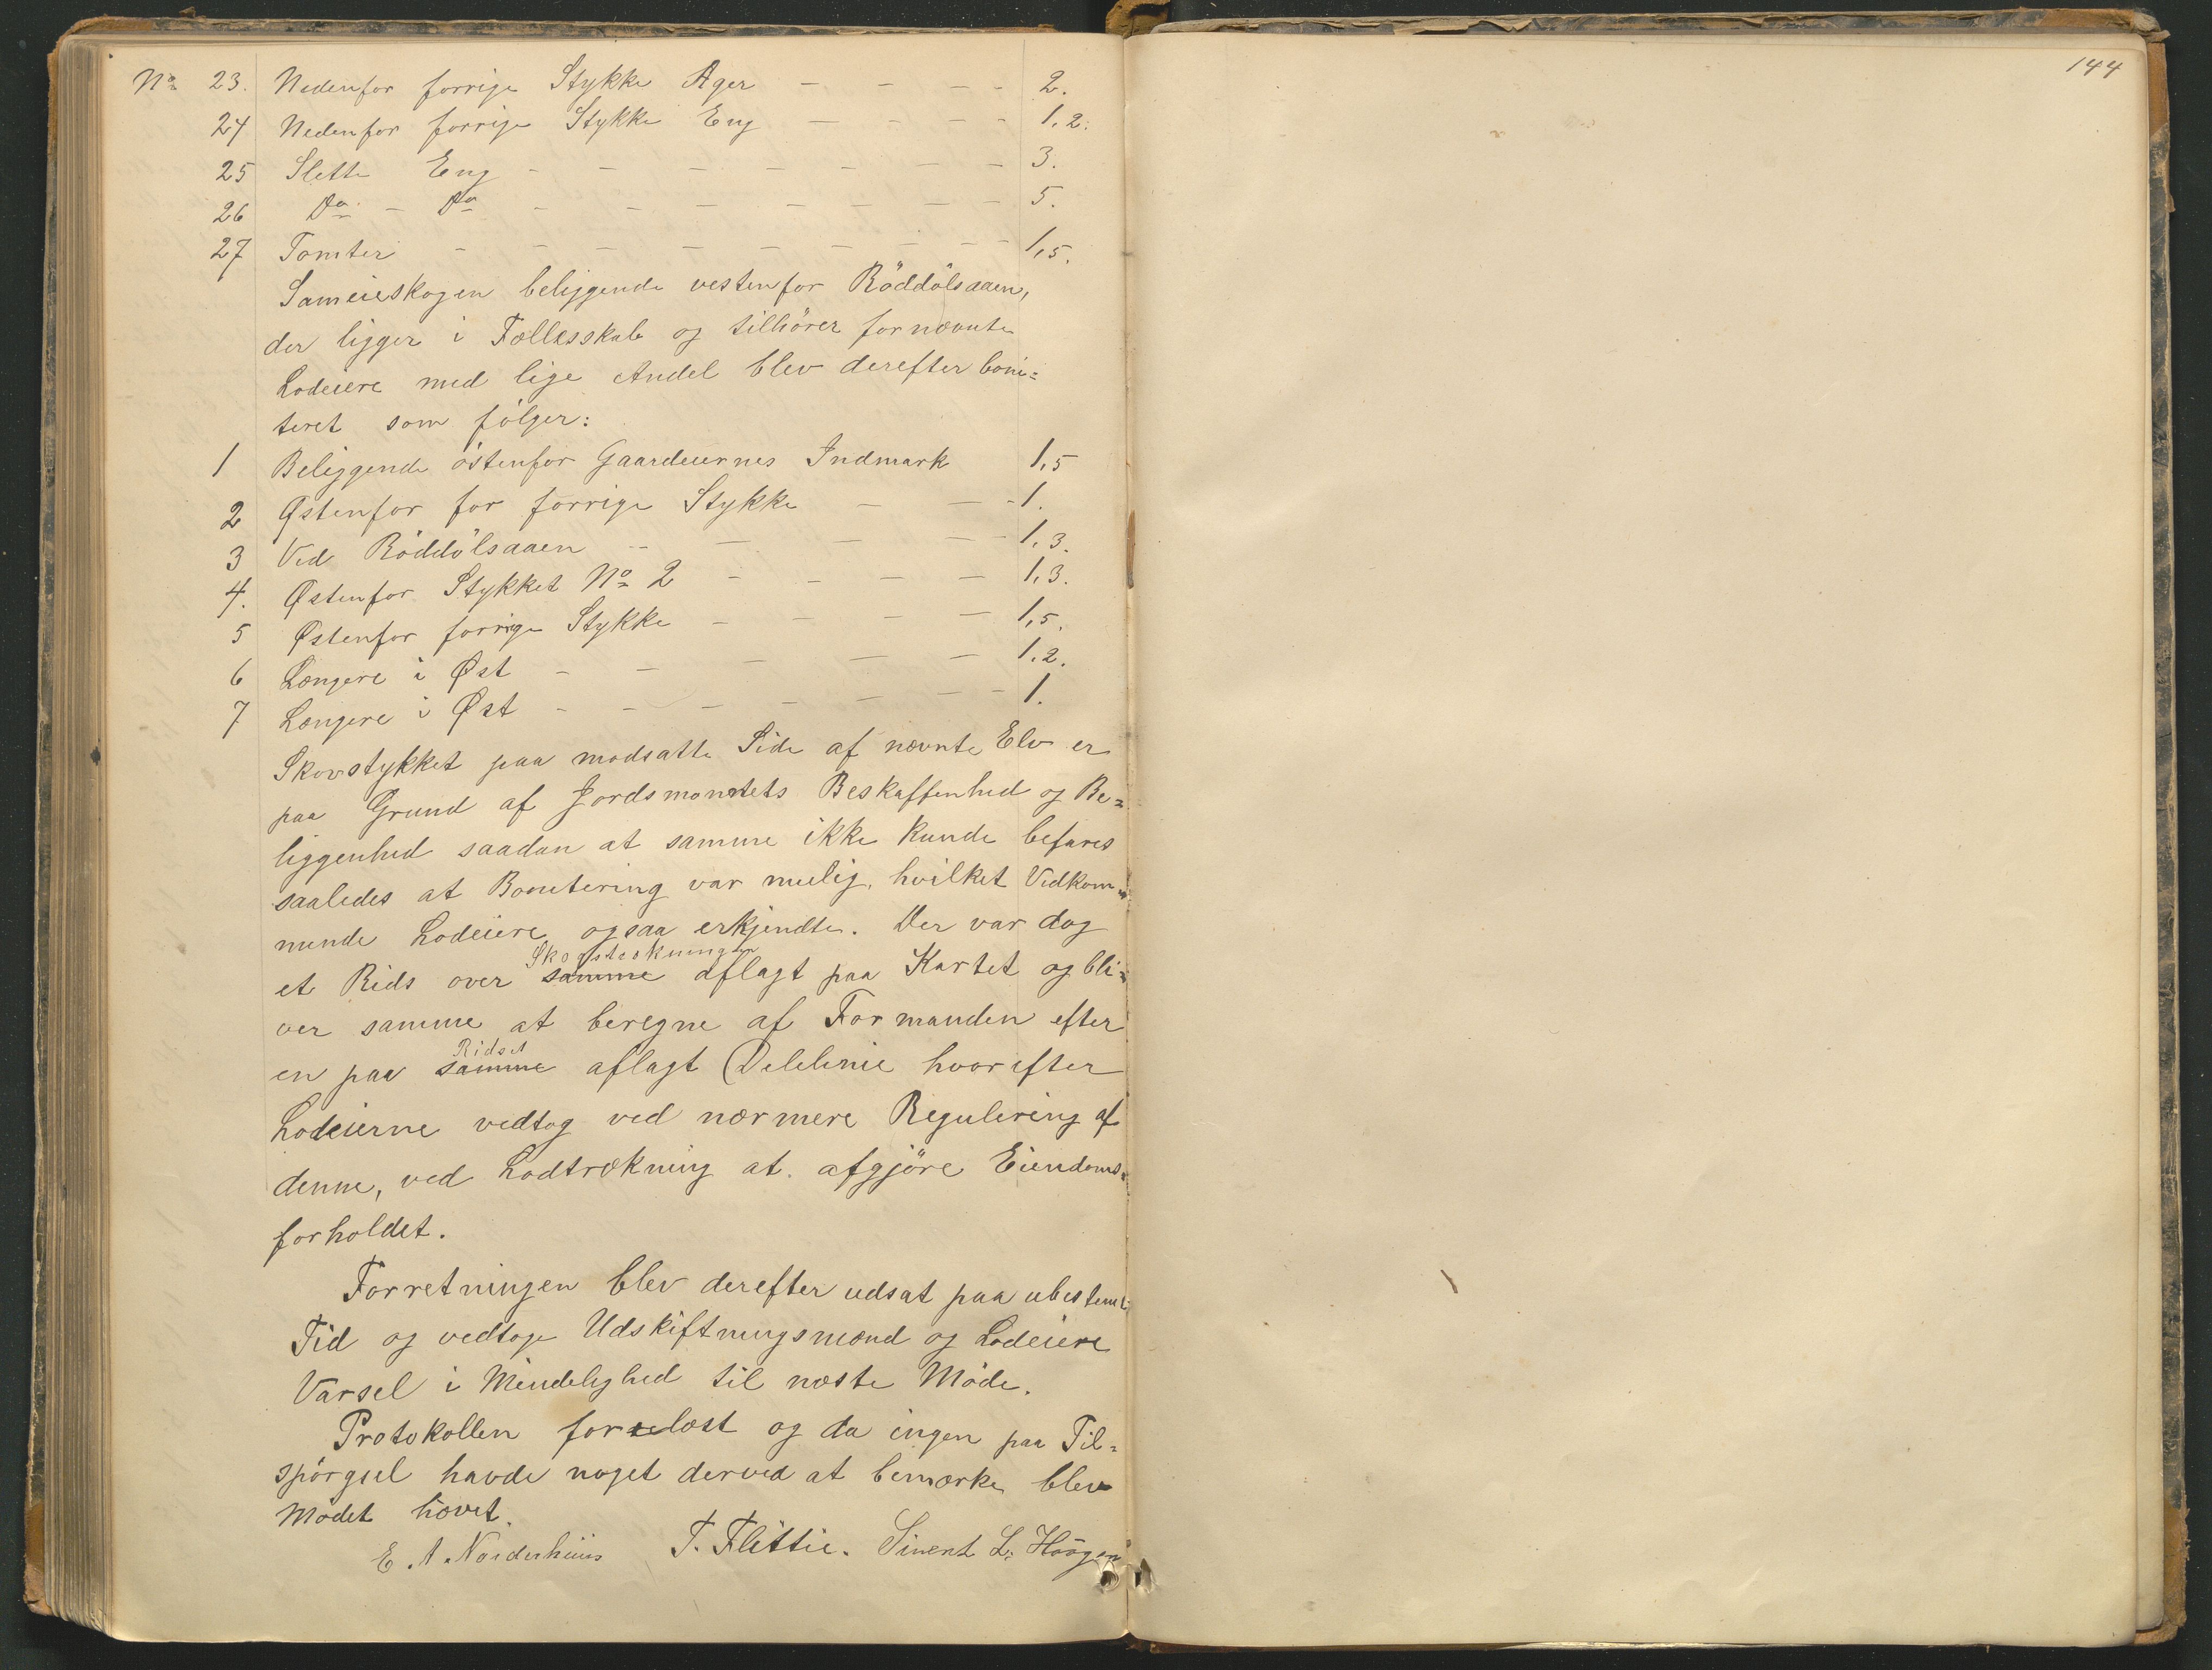 No 23. Nedenfor forrige Stykke Ager - - - - 2.
24 Nedenfor forrige Stykke Eng - - - - 1,2.
25 Slette Eng - - - - - - - 3.
26 Do - Do - - - - - - - 5.
27 Tomter - - - - - - - - 1,5.
Sameieskogen beliggende vestenfor Röddölsaaen,
der ligger i Fællesskab og tilhörer fornævnte
Lodeiere med lige Andel blev derefter boni=
teret som fölger:
1 Beliggende östenfor Gaardeiernes Indmark 1,5
2 Østenfor for forrige Stykke - - - 1.
3 Ved Röddölsaaen - - - - - 1,3.
4. Østenfor Stykket No 2 - - - - 1,3.
5 Østenfor forrige Stykke - - - - 1,5.
6 Længere i Øst - - - - - 1,2.
7 Længere i Øst - - - - - - - 1.
Skovstykket paa modsatte Side af nævnte Elv er
paa Grund af Jordsmonnets Beskaffenhed og Be=
liggenhed saadan at samme ikke kunde befares
saaledes at Bonitering var mulig, hvilket Vedkom=
mende Lodeiere ogsaa erkjendte. Der var dog
Skogstrækningen
et Rids over samme aflagt paa Kartet og bli=
ver samme at beregne af Formanden efter
Ridset
en paa samme aflagt Delelinie hvorefter
Lodeierne vedtog ved nærmere Regulering af
denne, ved Lodtrækning at afgjöre Eiendoms=
forholdet.
Forretningen blev derefter udsat paa ubestemt
Tid og vedtoge Udskiftningsmænd og Lodeiere
Varsel i Mindelighed til næste Möde.
Protokollen forelæst og da ingen paa Til=
spörgsel havde noget derved at bemærke blev
Mödet hævet.
E. A. Norderhuus T. Flittie. Sivert L. Haagen
144